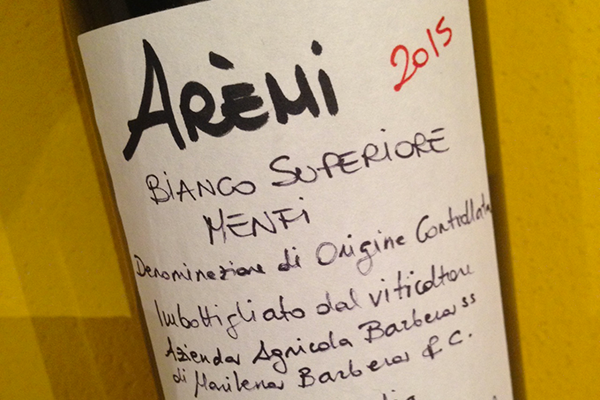 ARÈMI
2015
BIANCO SUPERIORE
MENFI
Denominazione di Origine Controllata
Imbottigliato dal viticoltore
Azienda Agricola Barbera ss
di Marilena Barbera & C.